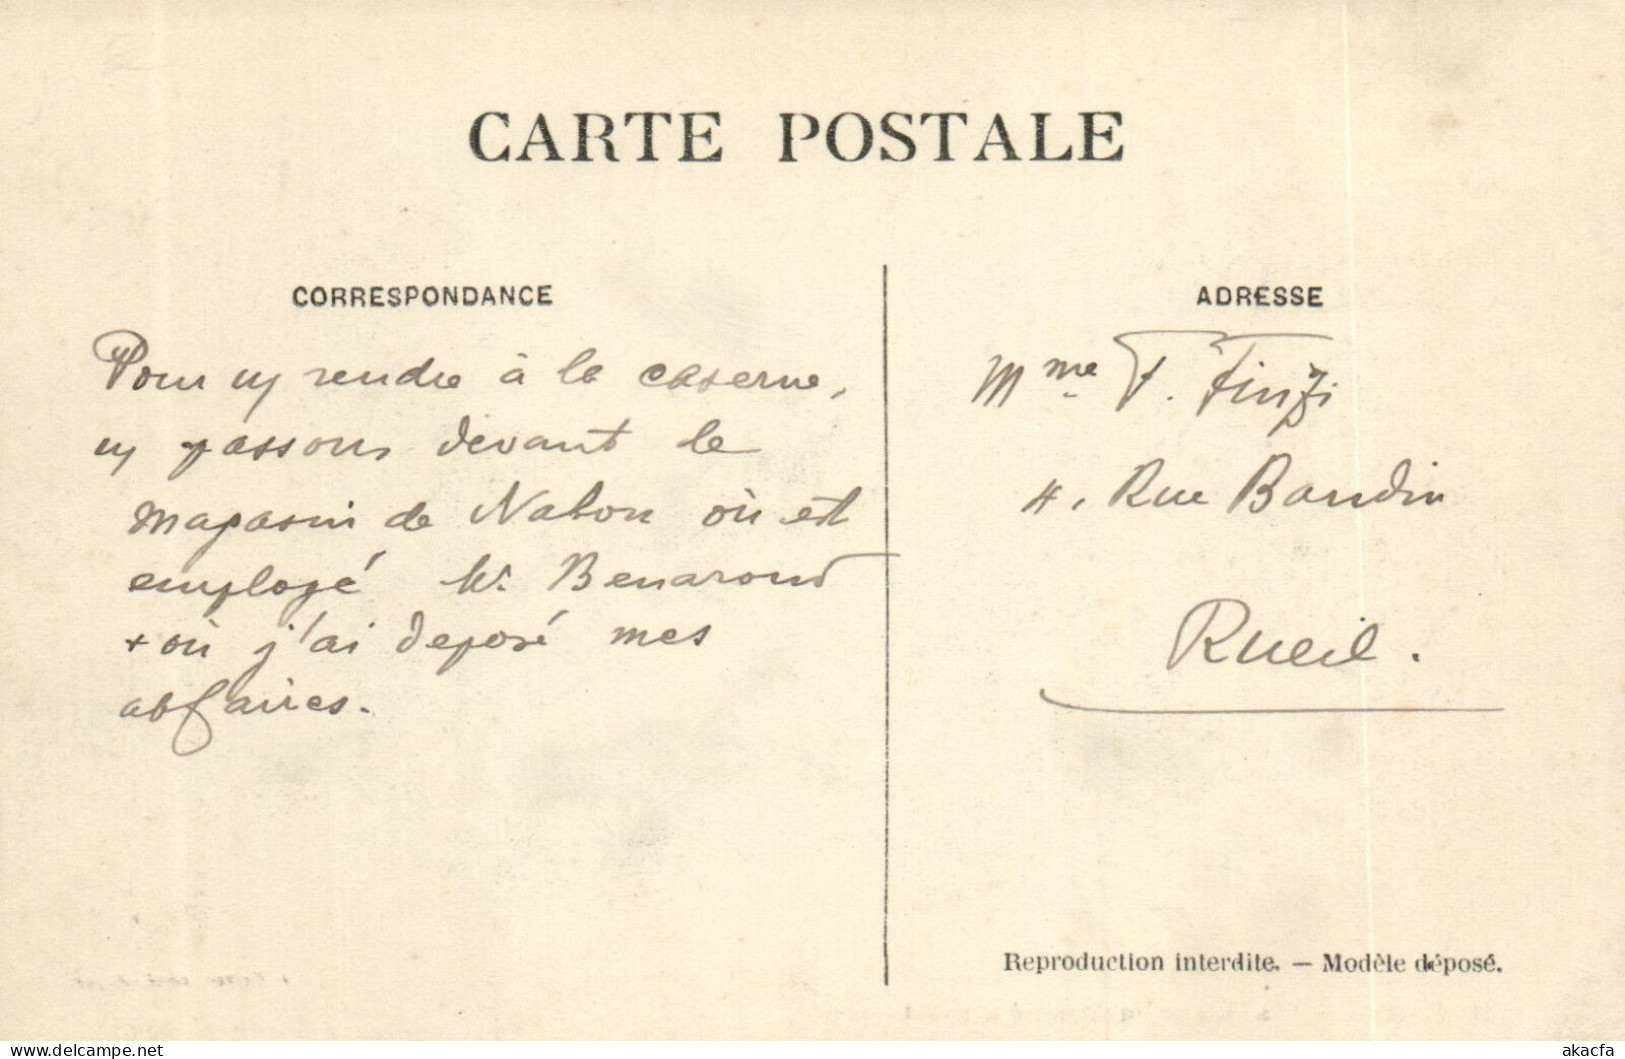 CARTE POSTALE
CORRESPONDANCE
Pour y rendre à la caserne,
ns passons devant le
magasin de Nahon où est
employé Mr. Benaroud
+ où j'ai déposé mes
affaires.
ADRESSE
Mme F. Finzi
4, Rue Baudin
Rueil.
Reproduction interdite. — Modèle déposé.
delcampe.net
akacfa